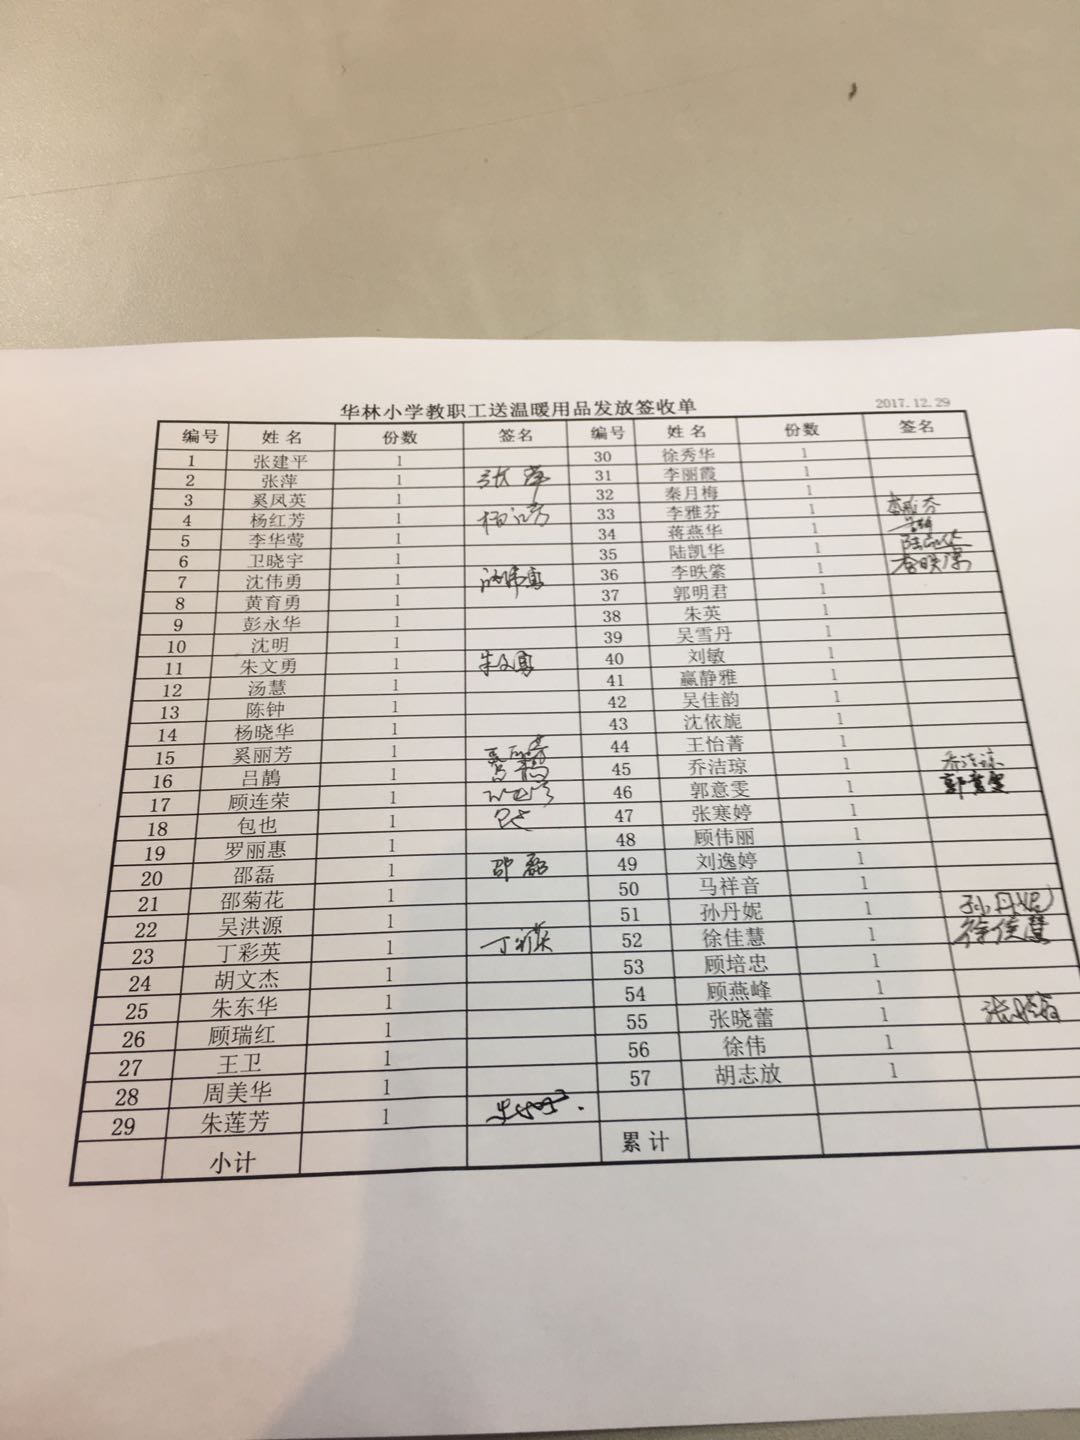 华林小学教职工送温暖用品发放签收单
2017.12.29
编号 姓名 份数 签名 编号 姓名 份数 签名
1 张建平 1 30 徐秀华 1
2 张萍 1 张萍 31 李丽霞 1
3 奚凤英 1 32 秦月梅 1
4 杨红芳 1 杨红芳 33 李雅芬 1
5 李华莺 1 34 蒋燕华 1
6 卫晓宇 1 35 陆凯华 1 陆凯华
7 沈伟勇 1 沈伟勇 36 李昳繁 1
8 黄育勇 1 37 郭明君 1
9 彭永华 1 38 朱英 1
10 沈明 1 39 吴雪丹 1
11 朱文勇 1 朱文勇 40 刘敏 1
12 汤慧 1 41 赢静雅 1
13 陈钟 1 42 吴佳韵 1
14 杨晓华 1 43 沈依旎 1
15 奚丽芳 1 奚丽芳 44 王怡菁 1
16 吕鹊 1 45 乔洁琼 1 乔洁琼
17 顾连荣 1 46 郭意雯 1 郭意雯
18 包也 1 包也 47 张寒婷 1
19 罗丽惠 1 48 顾伟丽 1
20 邵磊 1 邵磊 49 刘逸婷 1
21 邵菊花 1 50 马祥音 1
22 吴洪源 1 51 孙丹妮 1 孙丹妮
23 丁彩英 1 丁彩英 52 徐佳慧 1 徐佳慧
24 胡文杰 1 53 顾培忠 1
25 朱东华 1 54 顾燕峰 1
26 顾瑞红 1 55 张晓蕾 1
27 王卫 1 56 徐伟 1
28 周美华 1 57 胡志放 1
29 朱莲芳 1
小计 累计